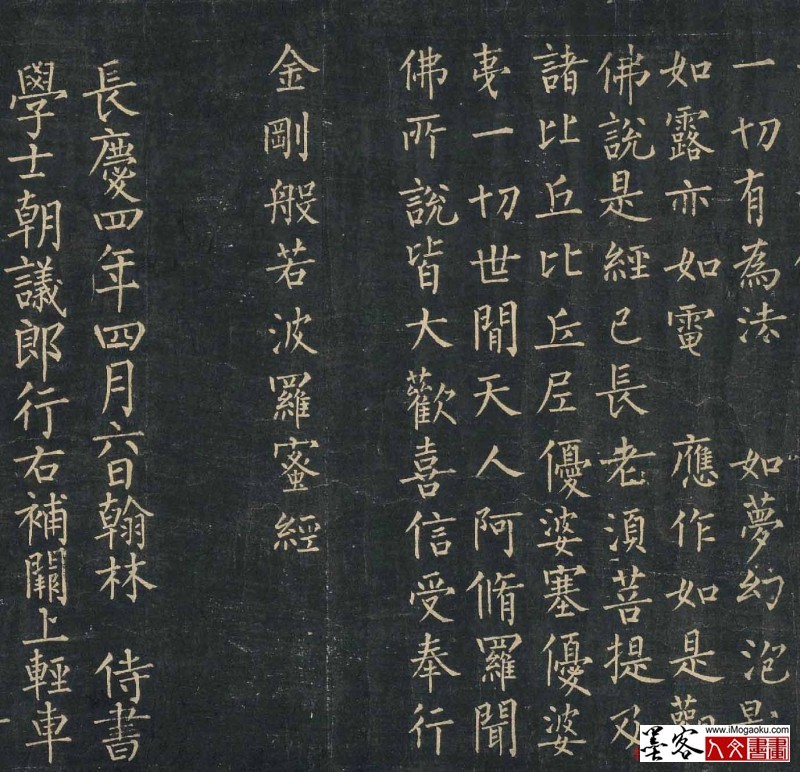 一切有為法 如夢幻泡影
如露亦如電 應作如是觀
佛說是經已長老湏菩提及
諸比丘比丘尼優婆塞優婆
夷一切世閒天人阿脩羅聞
佛所說皆大歡喜信受奉行
金剛般若波羅蜜經
長慶四年四月六日翰林 侍書
學士朝議郎行右補闕上輕車
墨客
www.iMogaoku.com
人文書畫